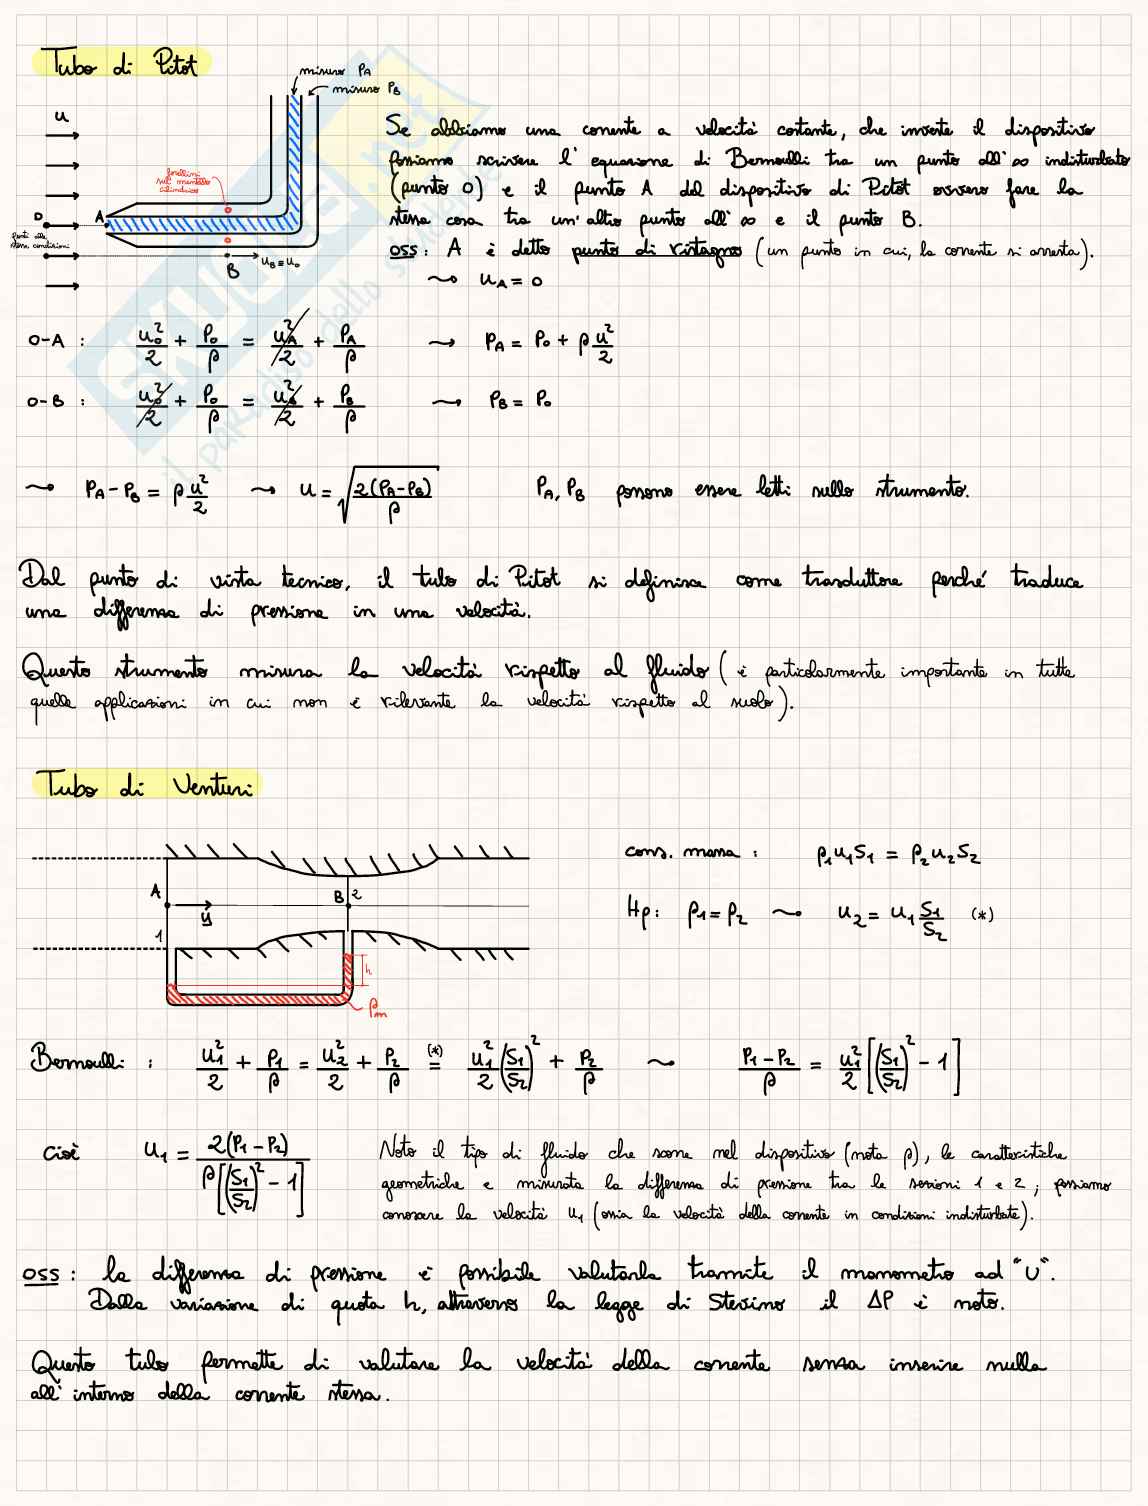 Tubo di Pitot
misura PA
misura PB
u
forellini
sul mantello
cilindrico
0
A
punti alle
stesse condizioni
B
uB ≡ u₀
Se abbiamo una corrente a velocità costante, che investe il dispositivo
possiamo scrivere l'equazione di Bernoulli tra un punto all'∞ indisturbato
(punto 0) e il punto A del dispositivo di Pitot ovvero fare la
stessa cosa tra un'altro punto all'∞ e il punto B.
OSS: A è detto punto di ristagno (un punto in cui, la corrente si arresta).
⇝ uA = 0
0-A : u₀²/2 + P₀/ρ = uA²/2 + PA/ρ ⇝ PA = P₀ + ρ u²/2
0-B : u₀²/2 + P₀/ρ = uB²/2 + PB/ρ ⇝ PB = P₀
⇝ PA - PB = ρ u²/2 ⇝ u = √(2(PA-PB)/ρ) PA, PB possono essere letti sullo strumento.
Dal punto di vista tecnico, il tubo di Pitot si definisce come trasduttore perché traduce
una differenza di pressione in una velocità.
Questo strumento misura la velocità rispetto al fluido (è particolarmente importante in tutte
quelle applicazioni in cui non è rilevante la velocità rispetto al suolo).
Tubo di Venturi
A
y
B
2
1
h
ρm
cons. massa : ρ₁u₁S₁ = ρ₂u₂S₂
Hp: ρ₁ = ρ₂ ⇝ u₂ = u₁ S₁/S₂ (*)
Bernoulli : u₁²/2 + P₁/ρ = u₂²/2 + P₂/ρ (*)= u₁²/2 (S₁/S₂)² + P₂/ρ ⇝ (P₁ - P₂)/ρ = u₁²/2 [(S₁/S₂)² - 1]
cioè u₁ = 2(P₁ - P₂)/ρ[(S₁/S₂)² - 1]
Noto il tipo di fluido che scorre nel dispositivo (nota ρ), le caratteristiche
geometriche e misurata la differenza di pressione tra le sezioni 1 e 2, possiamo
conoscere la velocità u₁ (ossia la velocità della corrente in condizioni indisturbate).
OSS : la differenza di pressione è possibile valutarla tramite il manometro ad "U".
Dalla variazione di quota h, attraverso la legge di Stevino il ΔP è noto.
Questo tubo permette di valutare la velocità della corrente senza inserire nulla
all'interno della corrente stessa.